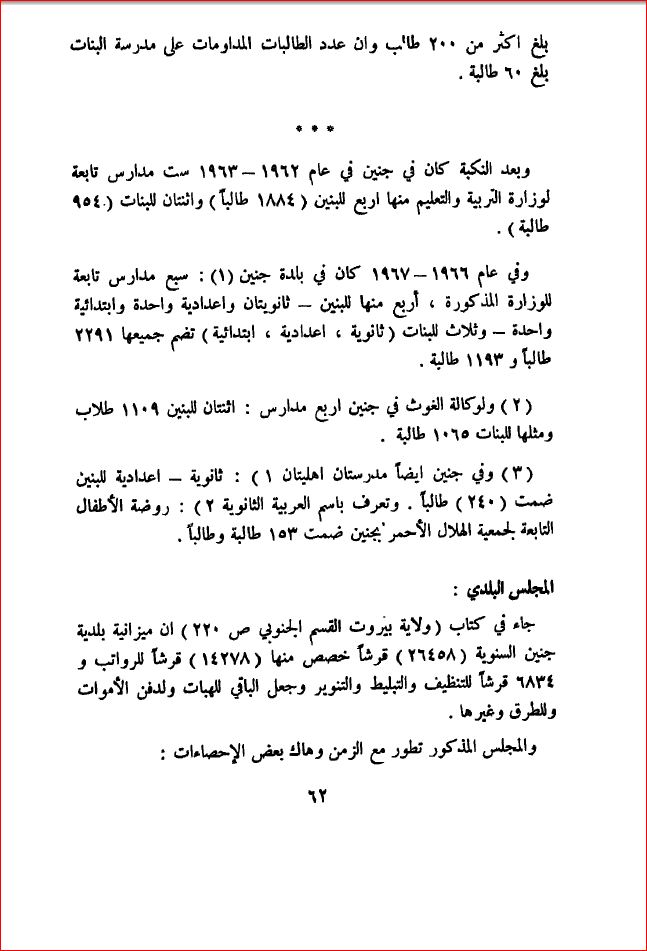 بلغ اكثر من ٢٠٠ طالب وان عدد الطالبات المداومات على مدرسة البنات
بلغ ٦٠ طالبة .
* * *
وبعد النكبة كان في جنين في عام ١٩٦٢ – ١٩٦٣ ست مدارس تابعة
لوزارة التربية والتعليم منها اربع للبنين ( ١٨٨٤ طالباً ) واثنتان للبنات ( ٩٥٤
طالبة ) .
وفي عام ١٩٦٦ – ١٩٦٧ كان في بلدة جنين (١) : سبع مدارس تابعة
للوزارة المذكورة ، أربع منها للبنين – ثانويتان واعدادية واحدة وابتدائية
واحدة – وثلاث للبنات ( ثانوية ، اعدادية ، ابتدائية ) تضم جميعها ٢٢٩١
طالباً و ١١٩٣ طالبة .
( ٢ ) ولوكالة الغوث في جنين اربع مدارس : اثنتان للبنين ١١٠٩ طلاب
ومثلها للبنات ١٠٦٥ طالبة .
( ٣ ) وفي جنين ايضاً مدرستان اهليتان ١ ) : ثانوية – اعدادية للبنين
ضمت ( ٢٤٠ ) طالباً . وتعرف باسم العربية الثانوية ٢ ) : روضة الأطفال
التابعة لجمعية الهلال الأحمر بجنين ضمت ١٥٣ طالبة وطالباً .
المجلس البلدي :
جاء في كتاب ( ولاية بيروت القسم الجنوبي ص ٢٢٠ ) ان ميزانية بلدية
جنين السنوية ( ٢٦٤٥٨ ) قرشاً خصص منها ( ١٤٢٧٨ ) قرشاً للرواتب و
٦٨٣٤ قرشاً للتنظيف والتبليط والتنوير وجعل الباقي للهبات ولدفن الأموات
وللطرق وغيرها .
والمجلس المذكور تطور مع الزمن وهاك بعض الإحصاءات :
٦٢